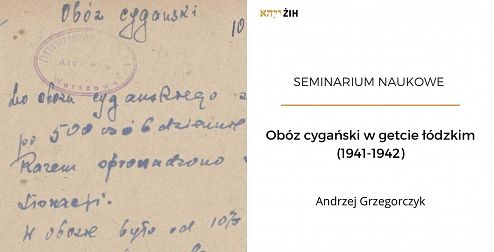 Obóz cygański
10
Archiwum
Warszawa
Do obozu cygańskiego
po 500 osób dziennie
Razem sprowadzono
W obozie było od 10
ŻIH
SEMINARIUM NAUKOWE
Obóz cygański w getcie łódzkim
(1941-1942)
Andrzej Grzegorczyk